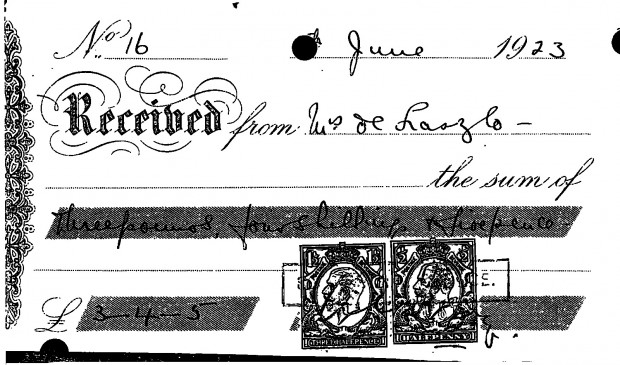 No 16 June 1923
Received from Mrs de Laszlo -
the sum of
Three pounds, four shillings & fivepence
£ 3-4-5
1½ 1½
THREE HALFPENCE HALFPENNY